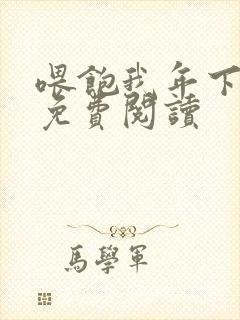 喂飽我年下
免費閱讀
馬學軍